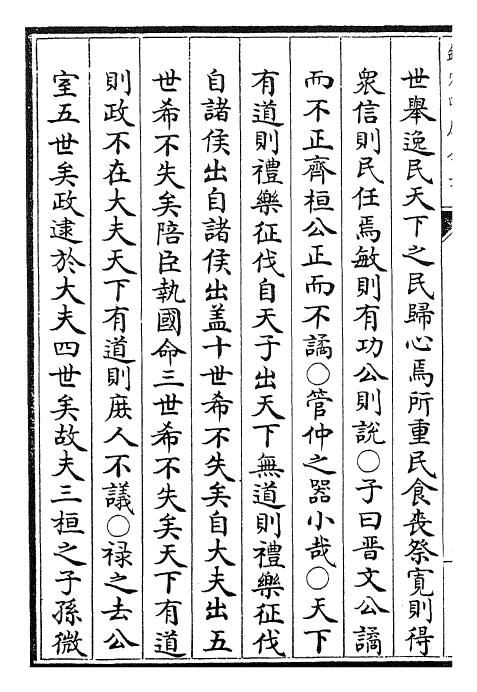 世舉逸民天下之民歸心焉所重民食喪祭寛則得
衆信則民任焉敏則有功公則說〇子曰晋文公譎
而不正齊桓公正而不譎〇管仲之器小哉〇天下
有道則禮樂征伐自天子出天下無道則禮樂征伐
自諸侯出自諸侯出盖十世希不失矣自大夫出五
世希不失矣陪臣執國命三世希不失矣天下有道
則政不在大夫天下有道則庶人不議〇禄之去公
室五世矣政逮於大夫四世矣故夫三桓之子孫微